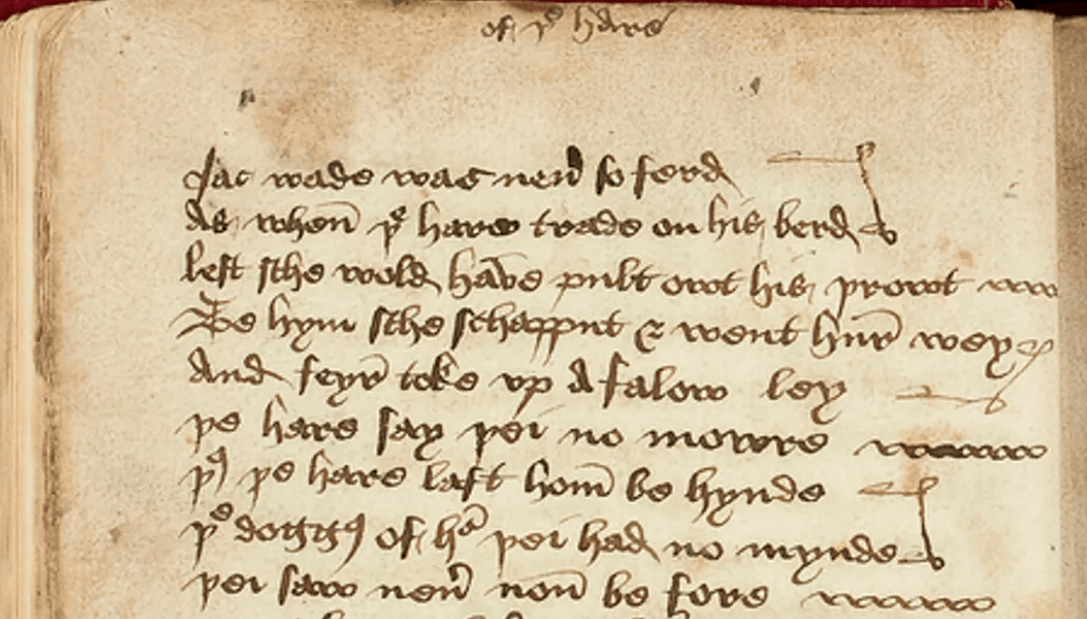 of þe hare
Jac wade was neu̕ so ferd
As when̄ þe hare trade on his berd
lest sche wold haue pult owt his þrowt
Be hym sche schapput & went hur̄ wey
And feyr̄ toke vp A falow ley
þe hare say þei no mowre
þus þe hare laft hom̄ be hynde
þe doggus of hr̄ þei had no mynde
þei saw neu̕ non̄ be fore